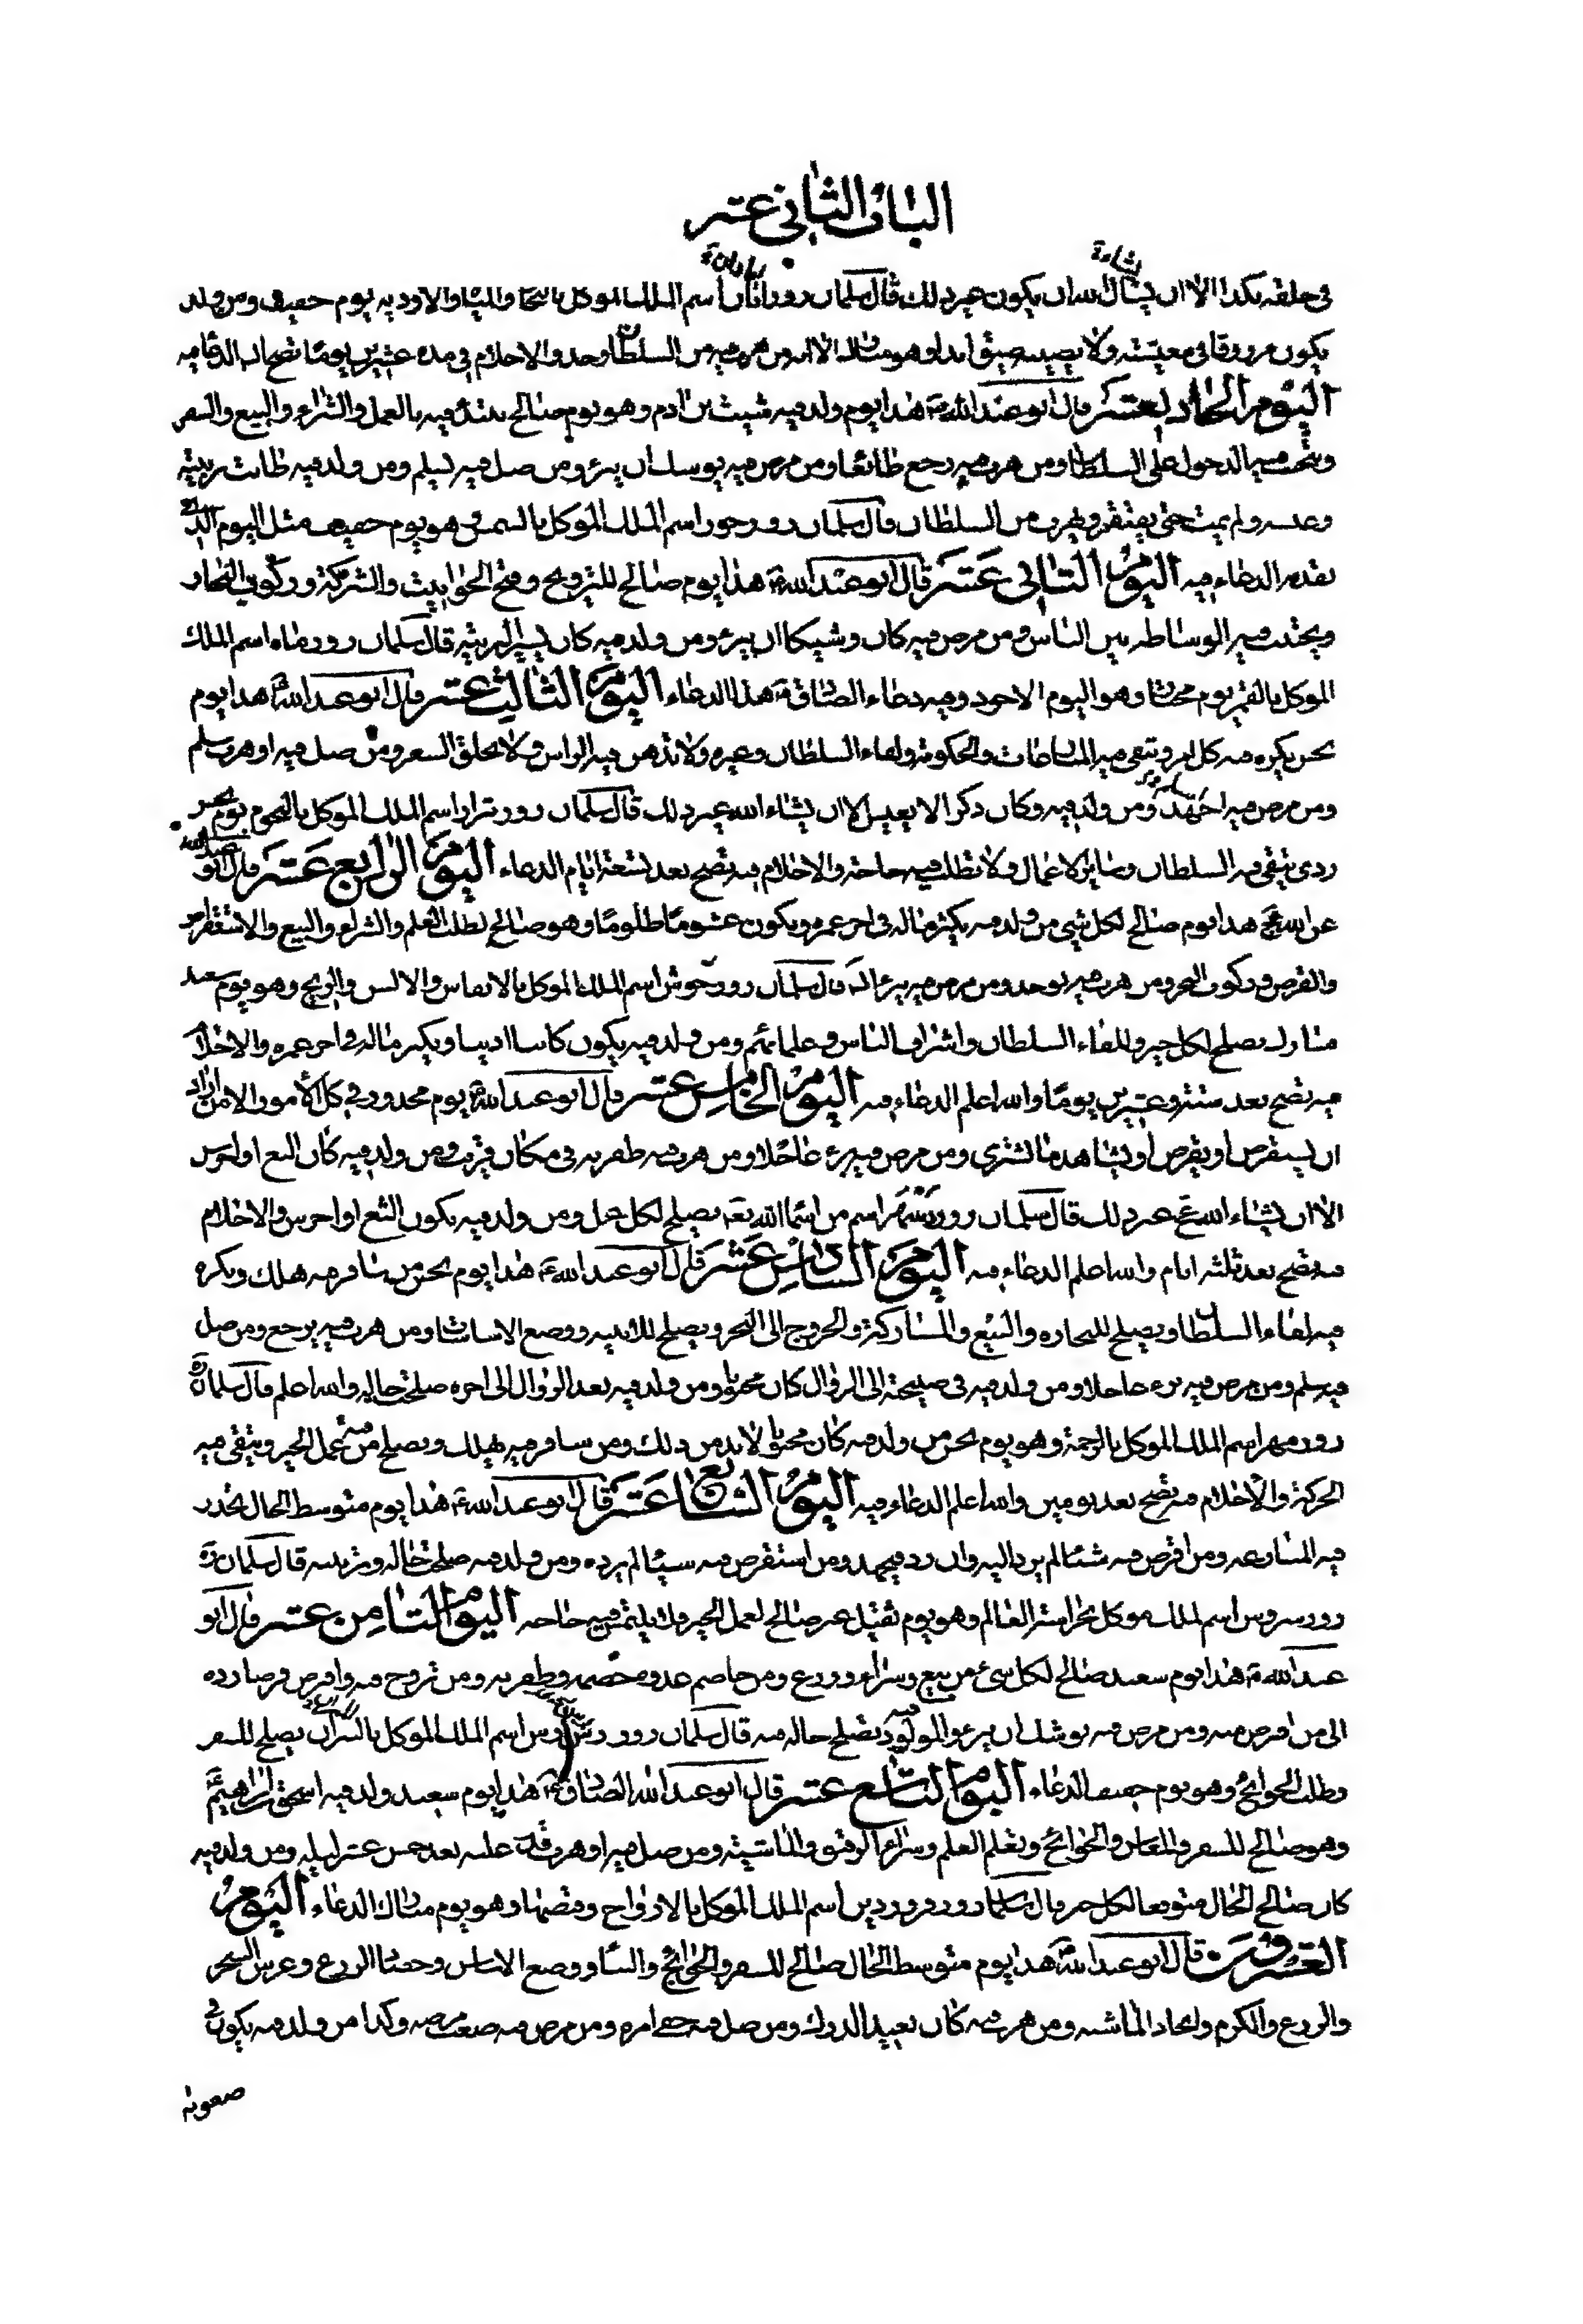 الباب الثاني عشر
في خلقه نكدا الا ان يشاء الله ان يكون غير ذلك قال سلمان روز ابان اسم الملك الموكل بالبحار والمياه والاودية يوم خفيف ومن ولد
يكون مرزوقا في معيشته ولا يصيبه ضيق ابدا وهو مبارك الا ان من هرب فيه من السلطان وجد والاحلام في مدة عشرين يوما تصح الدعاء فيه
اليوم الحادي عشر قال ابو عبد الله ع هذا يوم ولد فيه شيث بن ادم وهو يوم صالح يبتدئ فيه بالعمل والشراء والبيع والسفر
ويجتنب فيه الدخول على السلطان ومن هرب فيه رجع طائعا ومن مرض فيه يوشك ان يبرء ومن ضل فيه يسلم ومن ولد فيه طابت تربيته
وعيشه ولم يمت حتى يفتقر ويهرب من السلطان قال سلمان روز خور اسم الملك الموكل بالشمس هو يوم خفيف مثل اليوم الذي
تقدم الدعاء فيه اليوم الثاني عشر قال ابو عبد الله ع هذا يوم صالح للتزويج وفتح الحوانيت والشركة وركوب البحار
ويجتنب فيه الوساطة بين الناس ومن مرض فيه كان وشيكا ان يبرء ومن ولد فيه كان يسير التربية قال سلمان روز ماه اسم الملك
الموكل بالقمر يوم مختار وهو اليوم الاجود وفيه دعاء الصادق ع هذا الدعاء اليوم الثالث عشر قال ابو عبد الله ع هذا يوم
نحس يكره فيه كل امر ويتقى فيه المنازعات والحكومة ولقاء السلطان وغيره ولا تدهن فيه الراس ولا يحلق الشعر ومن ضل فيه او هرب سلم
ومن مرض فيه اجهد ومن ولد فيه وكان ذكرا لا يعيش الا ان يشاء الله غير ذلك قال سلمان روز تير اسم الملك الموكل بالنجوم يوم نحس
ردي يتقى فيه السلطان وسائر الاعمال ولا تطلب فيه حاجة والاحلام فيه تصح بعد تسعة ايام الدعاء اليوم الرابع عشر قال ابو
عبد الله ع هذا يوم صالح لكل شيء من ولد فيه يكثر ماله في اخر عمره ويكون غشوما ظلوما وهو صالح لطلب العلم والشراء والبيع والاستقراض
والقرض وركوب البحر ومن هرب فيه يوجد ومن مرض فيه يبرء قال سلمان روز جوش اسم الملك الموكل بالانفاس والالسن والريح وهو يوم سعيد
مبارك يصلح لكل خير وللقاء السلطان واشراف الناس وعلمائهم ومن ولد فيه يكون كاتبا اديبا ويكثر ماله في اخر عمره والاحلام
فيه تصح بعد ستة وعشرين يوما والله اعلم الدعاء فيه اليوم الخامس عشر قال ابو عبد الله ع يوم محذور في كل الامور الا من اراد
ان يستقرض او يقرض او يشاهد ما يشتري ومن مرض فيه برء عاجلا ومن هرب فيه ظفر به في مكان قريب ومن ولد فيه كان الثغ او اخرس
الا ان يشاء الله عن غير ذلك قال سلمان روز ديمهر اسم من اسماء الله تعه يصلح لكل عمل ومن ولد فيه يكون الثغ او اخرس والاحلام
فيه تصح بعد ثلثة ايام والله اعلم الدعاء فيه اليوم السادس عشر قال ابو عبد الله ع هذا يوم نحس من سافر فيه هلك ويكره
فيه لقاء السلطان ويصلح للتجارة والبيع والمشاركة والخروج الى البحر ويصلح للابنية ووضع الاساسات ومن هرب فيه يرجع ومن ضل
فيه سلم ومن مرض فيه برء عاجلا ومن ولد فيه في صبيحته الى الزوال كان مجنونا ومن ولد فيه بعد الزوال الى اخره صلحت حاله والله اعلم قال سلمان ره
روز مهر اسم الملك الموكل بالرحمة وهو يوم نحس من ولد فيه كان مجنونا لا بد من ذلك ومن سافر فيه يهلك ويصلح فيه عمل الخير ويتقى فيه
الحركة والاحلام فيه تصح بعد يومين والله اعلم الدعاء فيه اليوم السابع عشر قال ابو عبد الله ع هذا يوم متوسط الحال تحذر
فيه المنازعة ومن اقرض فيه شيئا لم يرد اليه وان رد فيجهد ومن استقرض فيه شيئا لم يرده ومن ولد فيه صلحت حاله وتربيته قال سلمان ره
روز سروس اسم الملك موكل بحراسة العالم وهو يوم ثقيل غير صالح لعمل الخير فلا يلتمس فيه حاجة اليوم الثامن عشر قال ابو
عبد الله ع هذا يوم سعيد صالح لكل شيء من بيع وشراء وزرع ومن خاصم عدوه خصمه وظفر به ومن تزوج فيه واقرض قرضا رده
الى من اقرض منه ومن مرض فيه يوشك ان يبرء والمولود يصلح حاله فيه قال سلمان روز رش اسم الملك الموكل بالنيران يصلح للسفر
وطلب الحوائج وهو يوم خفيف الدعاء اليوم التاسع عشر قال ابو عبد الله الصادق ع هذا يوم سعيد ولد فيه اسحق بن ابراهيم ع
وهو صالح للسفر والمعاش والحوائج وتعلم العلم وشراء الرقيق والماشية ومن ضل فيه او هرب قدر عليه بعد خمس عشر ليلة ومن ولد فيه
كان صالح الحال متوقعا لكل خير قال سلمان روز فروردين اسم الملك الموكل بالارواح وقبضها وهو يوم مبارك الدعاء اليوم
العشرون قال ابو عبد الله ع هذا يوم متوسط الحال صالح للسفر والحوائج والبناء ووضع الاساس وحصاد الزرع وغرس الشجر
والزرع والكرم واتخاذ الماشية ومن هرب فيه كان بعيد الدرك ومن ضل فيه خفي امره ومن مرض فيه صعب مرضه وكذا من ولد فيه يكون في
صعوبة